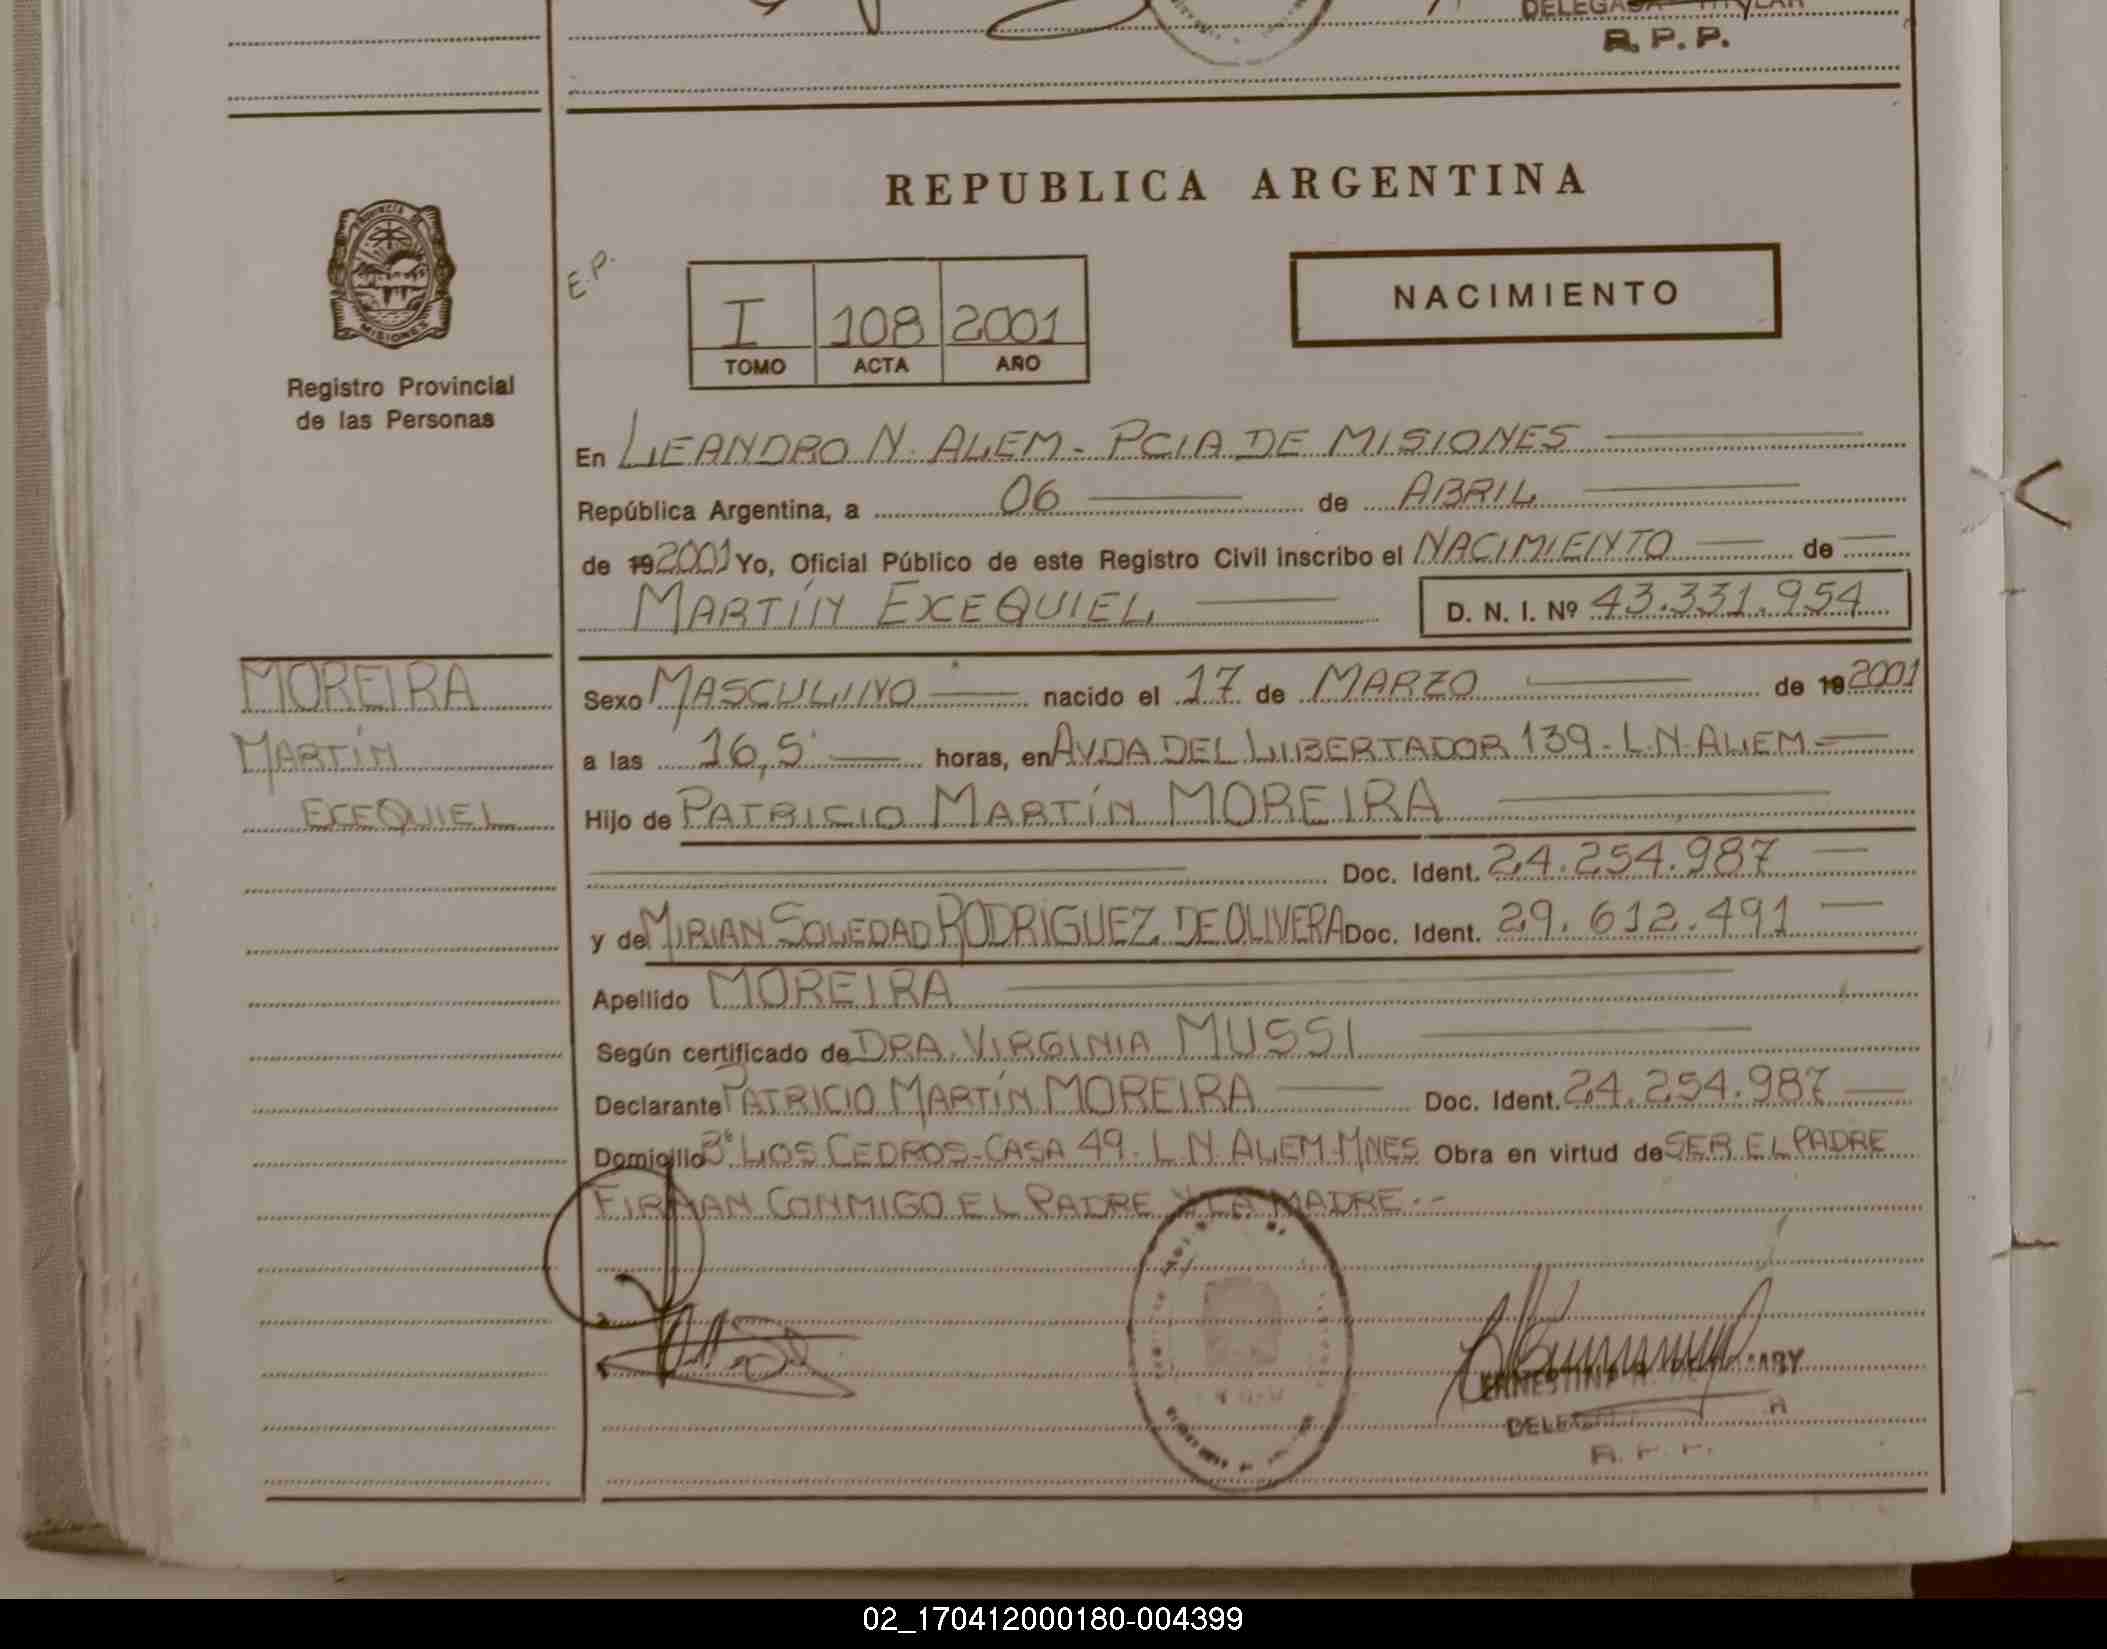 DELEGADA TITULAR
R. P. P.
REPUBLICA ARGENTINA
PROVINCIA DE
MISIONES
Registro Provincial
de las Personas
E.P.
I 108 2001
TOMO ACTA AÑO
NACIMIENTO
En LEANDRO N. ALEM - PCIA DE MISIONES
República Argentina, a 06 de ABRIL
de 192001 Yo, Oficial Público de este Registro Civil inscribo el NACIMIENTO de
MARTÍN EXEQUIEL D. N. I. Nº 43.331.954
MOREIRA
MARTÍN
EXEQUIEL
Sexo MASCULINO nacido el 17 de MARZO de 192001
a las 16,5' horas, en AVDA DEL LIBERTADOR 139 - L.N. ALEM -
Hijo de PATRICIO MARTÍN MOREIRA
Doc. Ident. 24.254.987
y de MIRIAN SOLEDAD RODRIGUEZ DE OLIVERA Doc. Ident. 29.612.491
Apellido MOREIRA
Según certificado de DRA. VIRGINIA MUSSI
Declarante PATRICIO MARTÍN MOREIRA Doc. Ident. 24.254.987
Domicilio Bº LOS CEDROS - CASA 49 - L.N. ALEM - MNES Obra en virtud de SER EL PADRE
FIRMAN CONMIGO EL PADRE Y LA MADRE.-
02_170412000180-004399